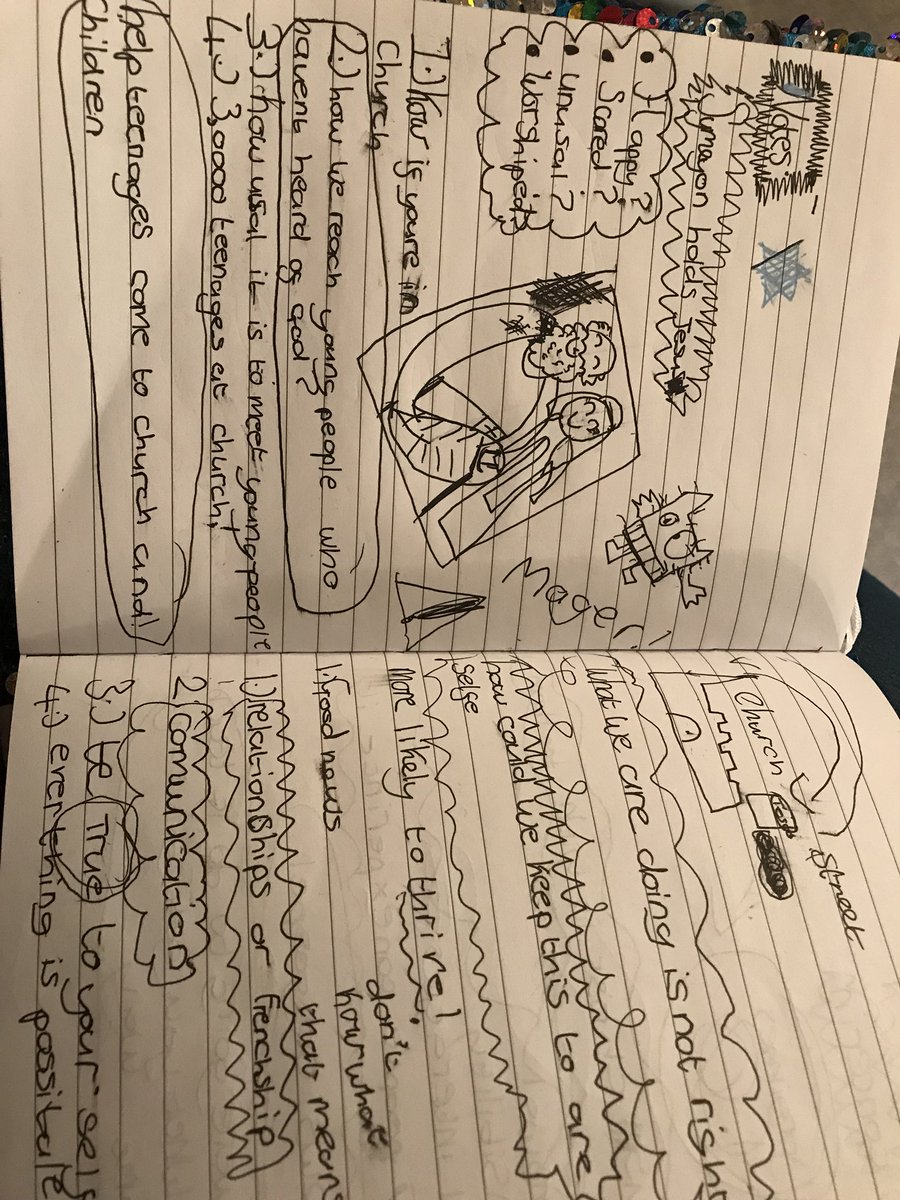 Notes:-
Symayon holds Jesus
• Happy?
• Scared?
• Unusal?
• Worshiped?
Mage!
1.) How is youre in
Church
2.) how we reach young people who
havent heard of god?
3.) how usal it is to meet young people
4.) 3,000 teenages at church!
help teenages come to church and
children
Church
Street
What we are doing is not right
how could we keep this to are
selfe
More likely to thrive!
don't
know what
that means
1.Good news
1.) relationships or frenchship
2.) comunication
3.) be True to your self
4.) everthing is possitale